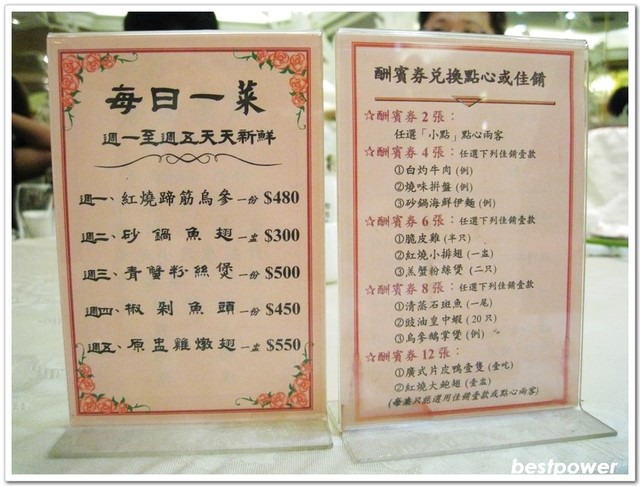 每日一菜
週一至週五天天新鮮
週一、紅燒蹄筋烏參 一份 $480
週二、砂鍋魚翅 一盅 $300
週三、青蟹粉絲煲 一份 $500
週四、椒剁魚頭 一份 $450
週五、原盅雞燉翅 一盅 $550
酬賓券兌換點心或佳餚
☆酬賓券 2 張：
任選「小點」點心兩客
☆酬賓券 4 張：任選下列佳餚壹款
①白灼牛肉 (例)
②燒味拼盤 (例)
③砂鍋海鮮伊麵 (例)
☆酬賓券 6 張：任選下列佳餚壹款
①脆皮雞 (半只)
②紅燒小排翅 (一盅)
③羔蟹粉絲煲 (二只)
☆酬賓券 8 張：任選下列佳餚壹款
①清蒸石斑魚 (一尾)
②豉油皇中蝦 (20 只)
③烏參鵝掌煲 (例)
☆酬賓券 12 張：
①廣式片皮鴨壹隻 (壹吃)
②紅燒大鮑翅 (壹盅)
(每桌只能選用佳餚壹款或點心兩客)
bestpower